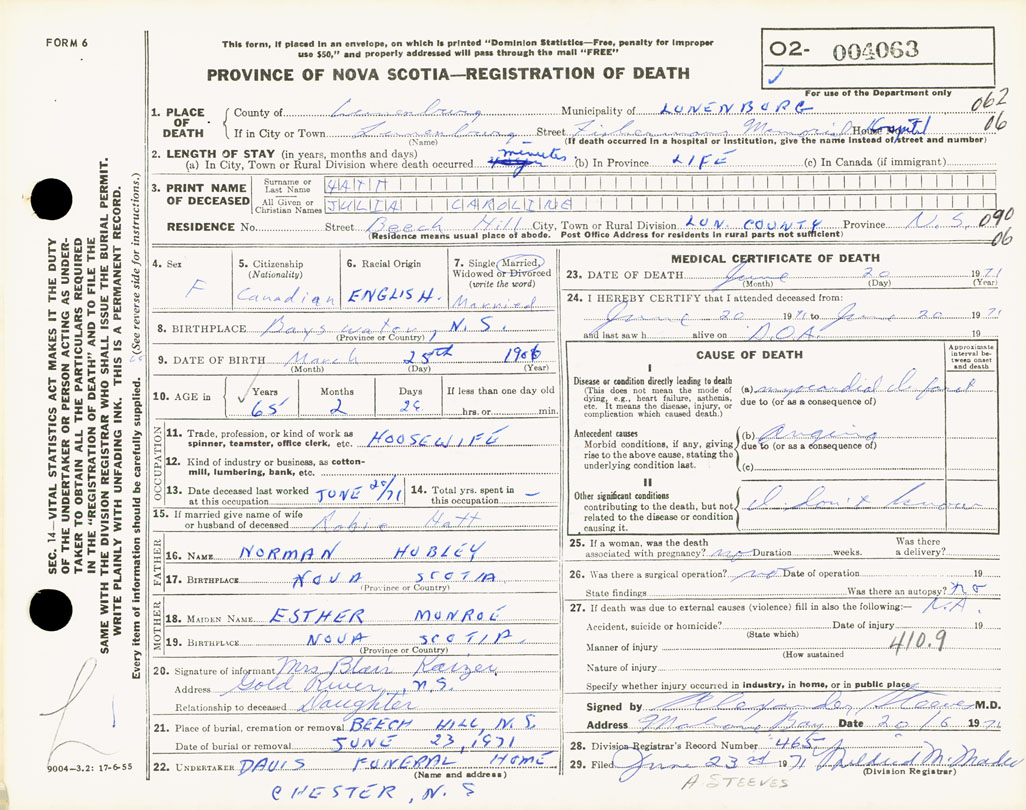 FORM 6
This form, if placed in an envelope, on which is printed "Dominion Statistics—Free, penalty for improper
use $50," and properly addressed will pass through the mail "FREE"
PROVINCE OF NOVA SCOTIA—REGISTRATION OF DEATH
02- 004063
For use of the Department only
062
06
1. PLACE OF DEATH
County of Lunenburg Municipality of LUNENBURG
If in City or Town Lunenburg Street Fishermans Memorial Hospital House No.
(Name) (If death occurred in a hospital or institution, give the name instead of street and number)
2. LENGTH OF STAY (in years, months and days)
(a) In City, Town or Rural Division where death occurred minutes (b) In Province LIFE (c) In Canada (if immigrant)
3. PRINT NAME OF DECEASED
Surname or Last Name HATT
All Given or Christian Names JULIA CAROLINE
RESIDENCE No. Street Beech Hill City, Town or Rural Division LUN. COUNTY Province N.S.
(Residence means usual place of abode. Post Office Address for residents in rural parts not sufficient)
090
06
4. Sex F
5. Citizenship (Nationality) Canadian
6. Racial Origin ENGLISH.
7. Single, Married, Widowed or Divorced (write the word) Married
8. BIRTHPLACE Bayswater, N.S.
(Province or Country)
9. DATE OF BIRTH March 25th 1906
(Month) (Day) (Year)
10. AGE in Years 65 Months 2 Days 26 If less than one day old hrs. or min.
OCCUPATION
11. Trade, profession, or kind of work as spinner, teamster, office clerk, etc. HOUSEWIFE
12. Kind of industry or business, as cotton-mill, lumbering, bank, etc.
13. Date deceased last worked at this occupation JUNE 20/71
14. Total yrs. spent in this occupation –
15. If married give name of wife or husband of deceased Robie Hatt
FATHER
16. NAME NORMAN HUBLEY
17. BIRTHPLACE NOVA SCOTIA
(Province or Country)
MOTHER
18. MAIDEN NAME ESTHER MUNROE
19. BIRTHPLACE NOVA SCOTIA
(Province or Country)
20. Signature of informant Mrs Blair Kaizer
Address Gold River, N.S.
Relationship to deceased Daughter
21. Place of burial, cremation or removal BEECH HILL, N.S.
Date of burial or removal JUNE 23, 1971
22. UNDERTAKER DAVIS FUNERAL HOME
(Name and address)
CHESTER, N.S
MEDICAL CERTIFICATE OF DEATH
23. DATE OF DEATH June 20 1971
(Month) (Day) (Year)
24. I HEREBY CERTIFY that I attended deceased from:
June 20 1971 to June 20 1971
and last saw h alive on D.O.A. 19
CAUSE OF DEATH
Approximate interval between onset and death
I
Disease or condition directly leading to death
(This does not mean the mode of dying, e.g., heart failure, asthenia, etc. It means the disease, injury, or complication which caused death.)
(a) myocardial Infarct
due to (or as a consequence of)
Antecedent causes
Morbid conditions, if any, giving rise to the above cause, stating the underlying condition last.
(b) Angina
due to (or as a consequence of)
(c)
II
Other significant conditions
contributing to the death, but not related to the disease or condition causing it.
I don't know
25. If a woman, was the death associated with pregnancy? no Duration weeks. Was there a delivery?
26. Was there a surgical operation? no Date of operation 19
State findings Was there an autopsy? no
27. If death was due to external causes (violence) fill in also the following:— N.A.
Accident, suicide or homicide? Date of injury 19
(State which)
Manner of injury 410.9
(How sustained)
Nature of injury
Specify whether injury occurred in industry, in home, or in public place
Signed by Alexander Steeves M.D.
Address Mahone Bay Date 20/6 1971
28. Division Registrar's Record Number 465
29. Filed June 23rd 1971 Mildred M. Mader
(Division Registrar)
A STEEVES
SEC. 14—VITAL STATISTICS ACT MAKES IT THE DUTY
OF THE UNDERTAKER OR PERSON ACTING AS UNDER-
TAKER TO OBTAIN ALL THE PARTICULARS REQUIRED
IN THE "REGISTRATION OF DEATH" AND TO FILE THE
SAME WITH THE DIVISION REGISTRAR WHO SHALL ISSUE THE BURIAL PERMIT.
WRITE PLAINLY WITH UNFADING INK. THIS IS A PERMANENT RECORD.
Every item of information should be carefully supplied. (See reverse side for instructions.)
9004-3.2: 17-6-55